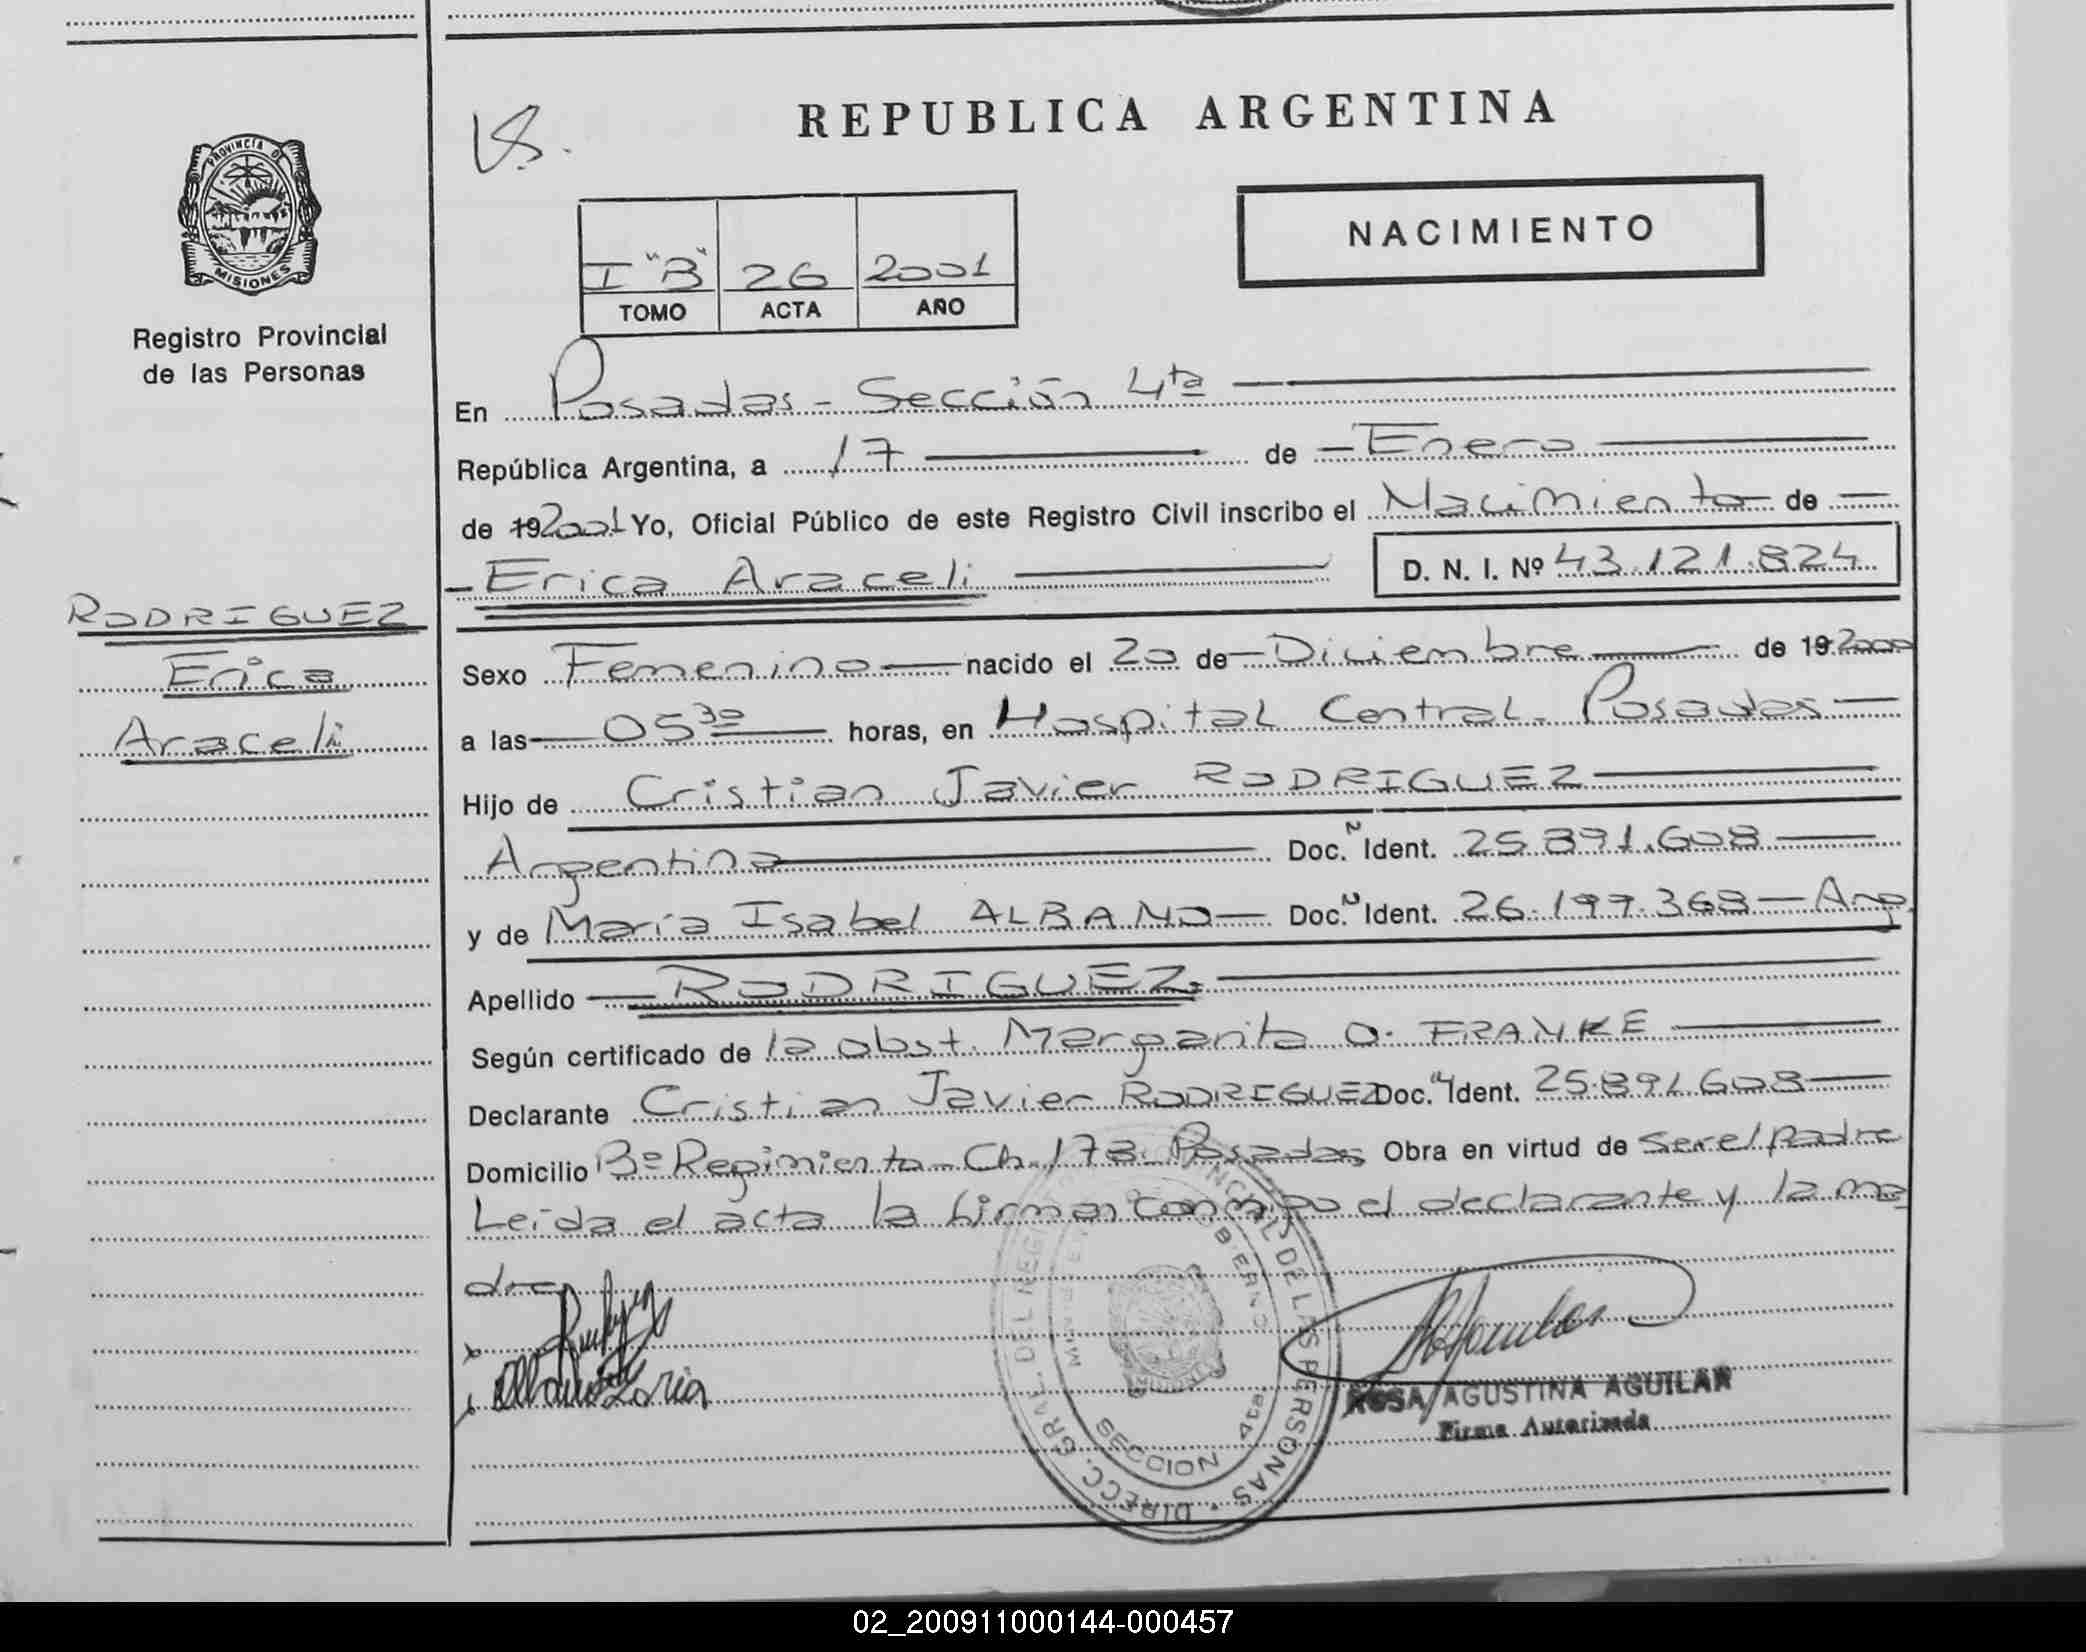 REPUBLICA ARGENTINA
PROVINCIA DE
MISIONES
Registro Provincial
de las Personas
NACIMIENTO
I "B" 26 2001
TOMO ACTA AÑO
En Posadas - Sección 4ta
República Argentina, a 17 de Enero
de 192001 Yo, Oficial Público de este Registro Civil inscribo el Nacimiento de
Erica Araceli D. N. I. Nº 43.121.824
RODRIGUEZ
Erica
Araceli
Sexo Femenino nacido el 20 de Diciembre de 19 2000
a las 05 30 horas, en Hospital Central - Posadas
Hijo de Cristian Javier RODRIGUEZ
Argentina Doc. Ident. 25.891.608
y de María Isabel ALBANO Doc. Ident. 26.199.368 - Arg.
Apellido RODRIGUEZ
Según certificado de la obst. Margarita O. FRANKE
Declarante Cristian Javier RODRIGUEZ Doc. Ident. 25.891.608
Domicilio Bº Regimiento - Ch. 178 - Posadas Obra en virtud de Ser el padre
Leída el acta la firman conmigo el declarante y la ma
dre
DIRECC. GRAL. DEL REGISTRO PROVINCIAL DE LAS PERSONAS
SECCION 4ta
ROSA AGUSTINA AGUILAR
Firma Autorizada
02_200911000144-000457